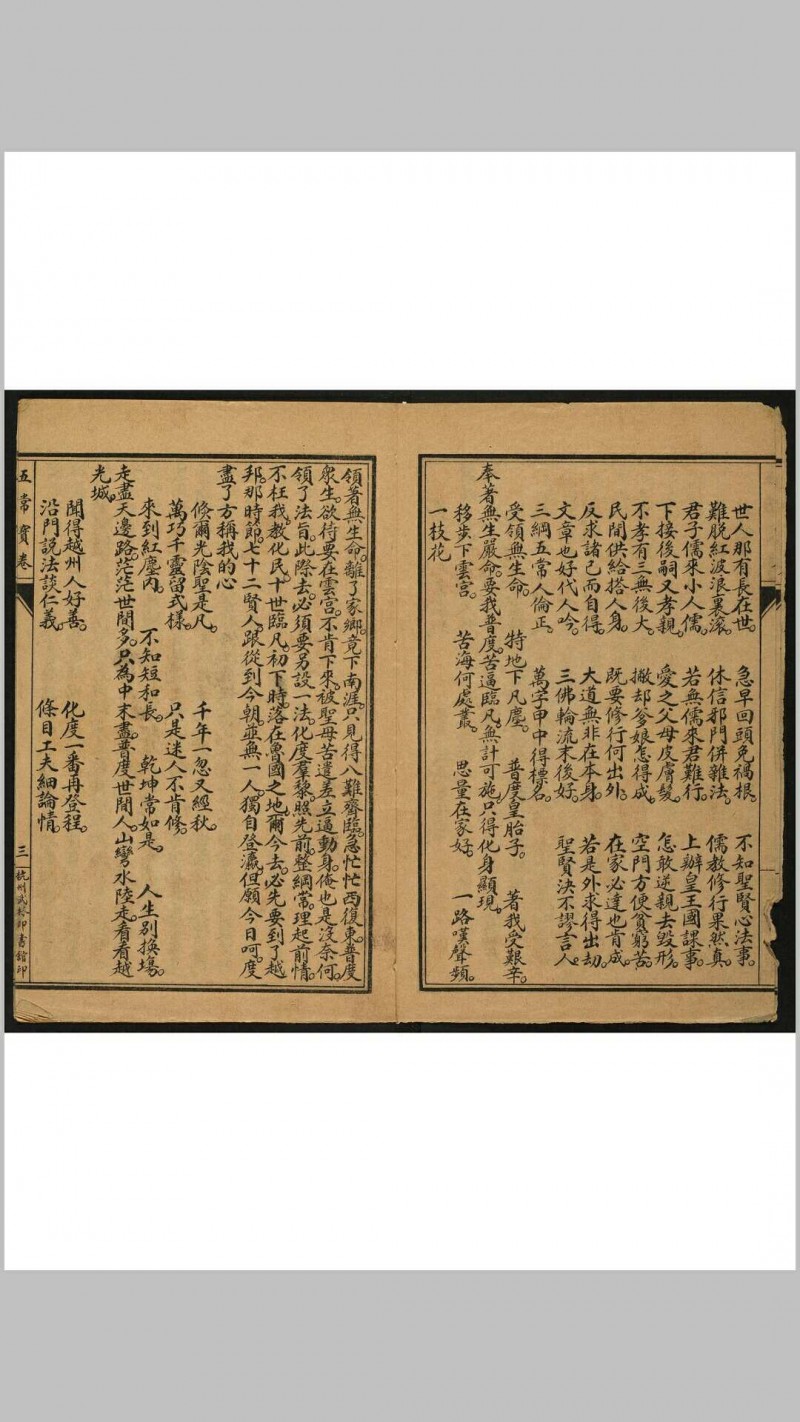 世人那有長在世。　急早回頭免禍根。　不知聖賢心法事。
難脫紅波浪裏滚。　休信邪門併雜法。　儒教修行果然真。
君子儒來小人儒。　若無儒來君難行。　上辦皇王國課事。
下接後嗣又孝親。　愛之父母皮膚髮。　怎敢逆親去毀形。
不孝有三無後大。　撇却爹娘怎得成。　空門方便貧窮苦。
民間供給搭人身。　既要修行何出外。　在家必達也肯成。
反求諸己而自得。　大道無非在本身。　若是外求得出劫。
文章也好代人吟。　三佛輪流末後好。　聖賢決不謬言人。
三綱五常人倫正。　萬字申中得標名。
受領無生命。　特地下凡塵。　普度皇胎子。　著我受艱辛。
奉著無生嚴命。要我普度。苦逼臨凡。無計可施。只得化身顯現。
移步下雲宮。　苦海何處叢。　思量在家好。　一路嘆聲頻。
一枝花
領著無生命。離了家鄉。竟下南涯。只見得八難齊臨。急忙忙西復東。普度
衆生。欲待要在雲宮。不肯下來。被聖母苦遣差立逼動身。俺也是没奈何。
領了法旨。此際去。必須要另設一法。化度羣黎。照先前。整綱常。理起前情。
不枉我。教化民。十世臨凡。初下時。落在魯國之地。爾今去。必先要到了越
邦。那時節。七十二賢人。跟從到今朝。並無一人。獨自登瀛。但願今日呵。度
盡了方稱我的心
倏爾光陰聖是凡。　千年一忽又經秋。
萬巧千靈留式樣。　只是迷人不肯修。
來到紅塵内。　不知短和長。　乾坤常如是。　人生別換塲。
走盡天邊路。茫茫世間多。只為中末盡。普度世間人。山彎水陸走。看看越
光城。
聞得越州人好善。　化度一番再登程。
沿門說法談仁義。　條目工夫細論情。
五常寳卷
三
杭州武林印書舘印